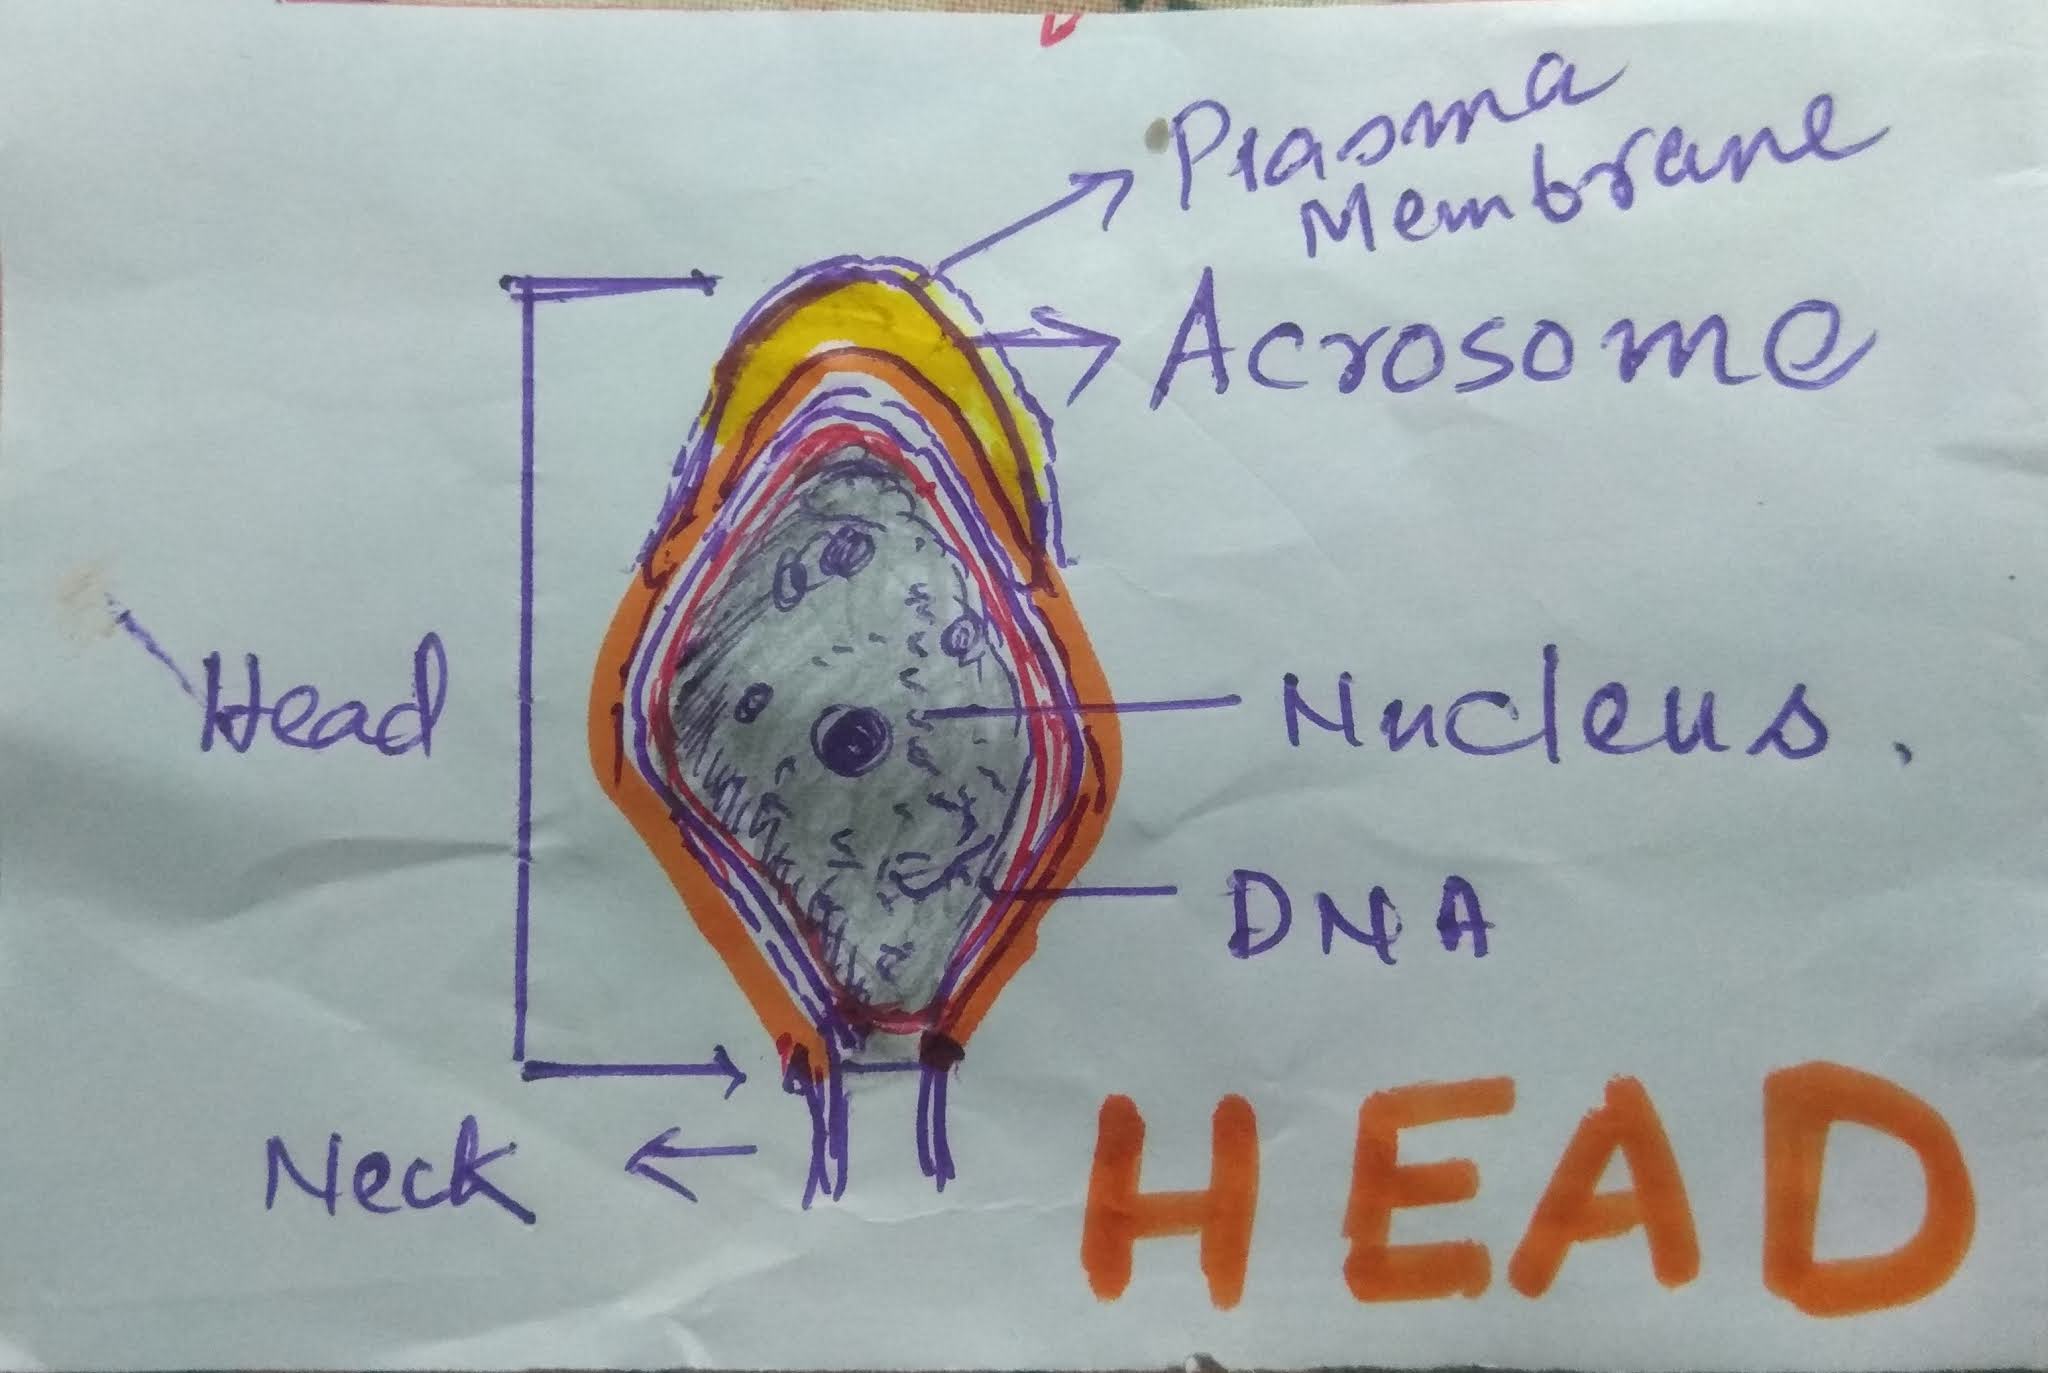 Plasma
Membrane
Acrosome
Head
Nucleus.
DNA
Neck
HEAD